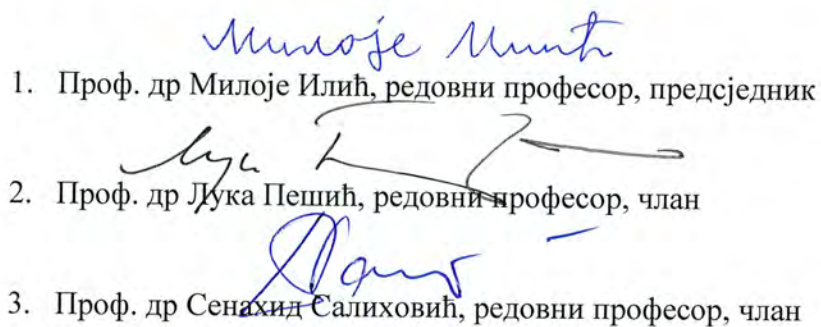 Милоје Илић
1. Проф. др Милоје Илић, редовни професор, предсједник
Лука
2. Проф. др Лука Пешић, редовни професор, члан
3. Проф. др Сенахид Салиховић, редовни професор, члан